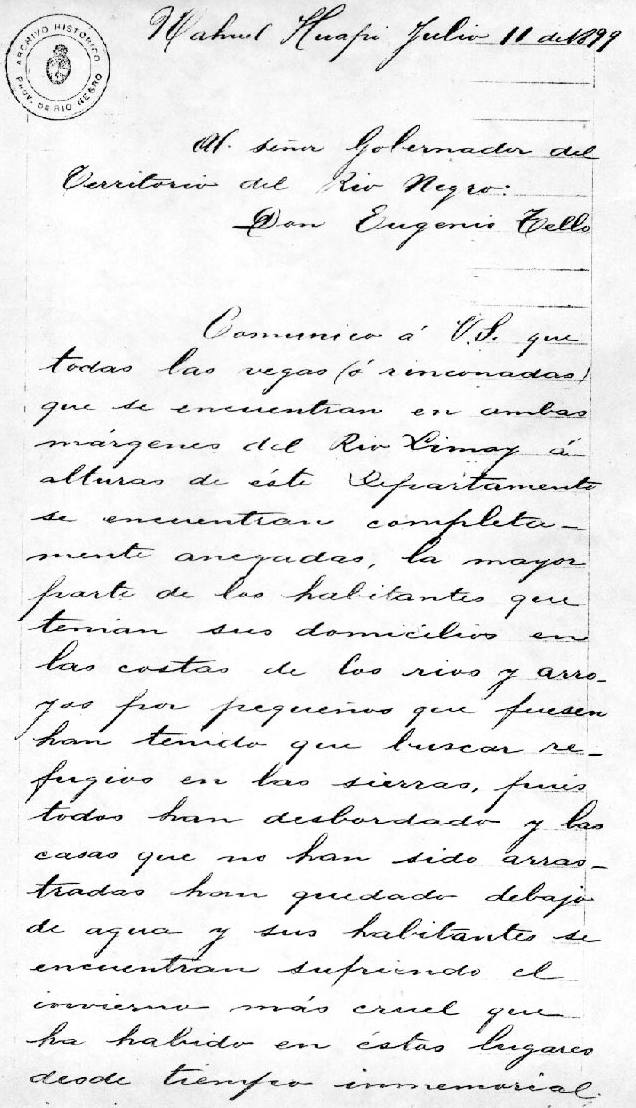 ARCHIVO HISTORICO
PROV. DE RIO NEGRO
Nahuel Huapi Julio 11 de 1899
Al señor Gobernador del
Territorio del Rio Negro:
Don Eugenio Tello
Comunico á V.S. que
todas las vegas (ó rinconadas)
que se encuentran en ambas
márgenes del Rio Limay á
alturas de éste Departamento
se encuentran completa-
mente anegadas, la mayor
parte de los habitantes que
tenian sus domicilios en
las costas de los rios y arro-
yos por pequeños que fuesen
han tenido que buscar re-
fugios en las sierras, pues
todos han desbordado y las
casas que no han sido arras-
tradas han quedado debajo
de agua y sus habitantes se
encuentran sufriendo el
invierno más cruel que
ha habido en éstos lugares
desde tiempo inmemorial.